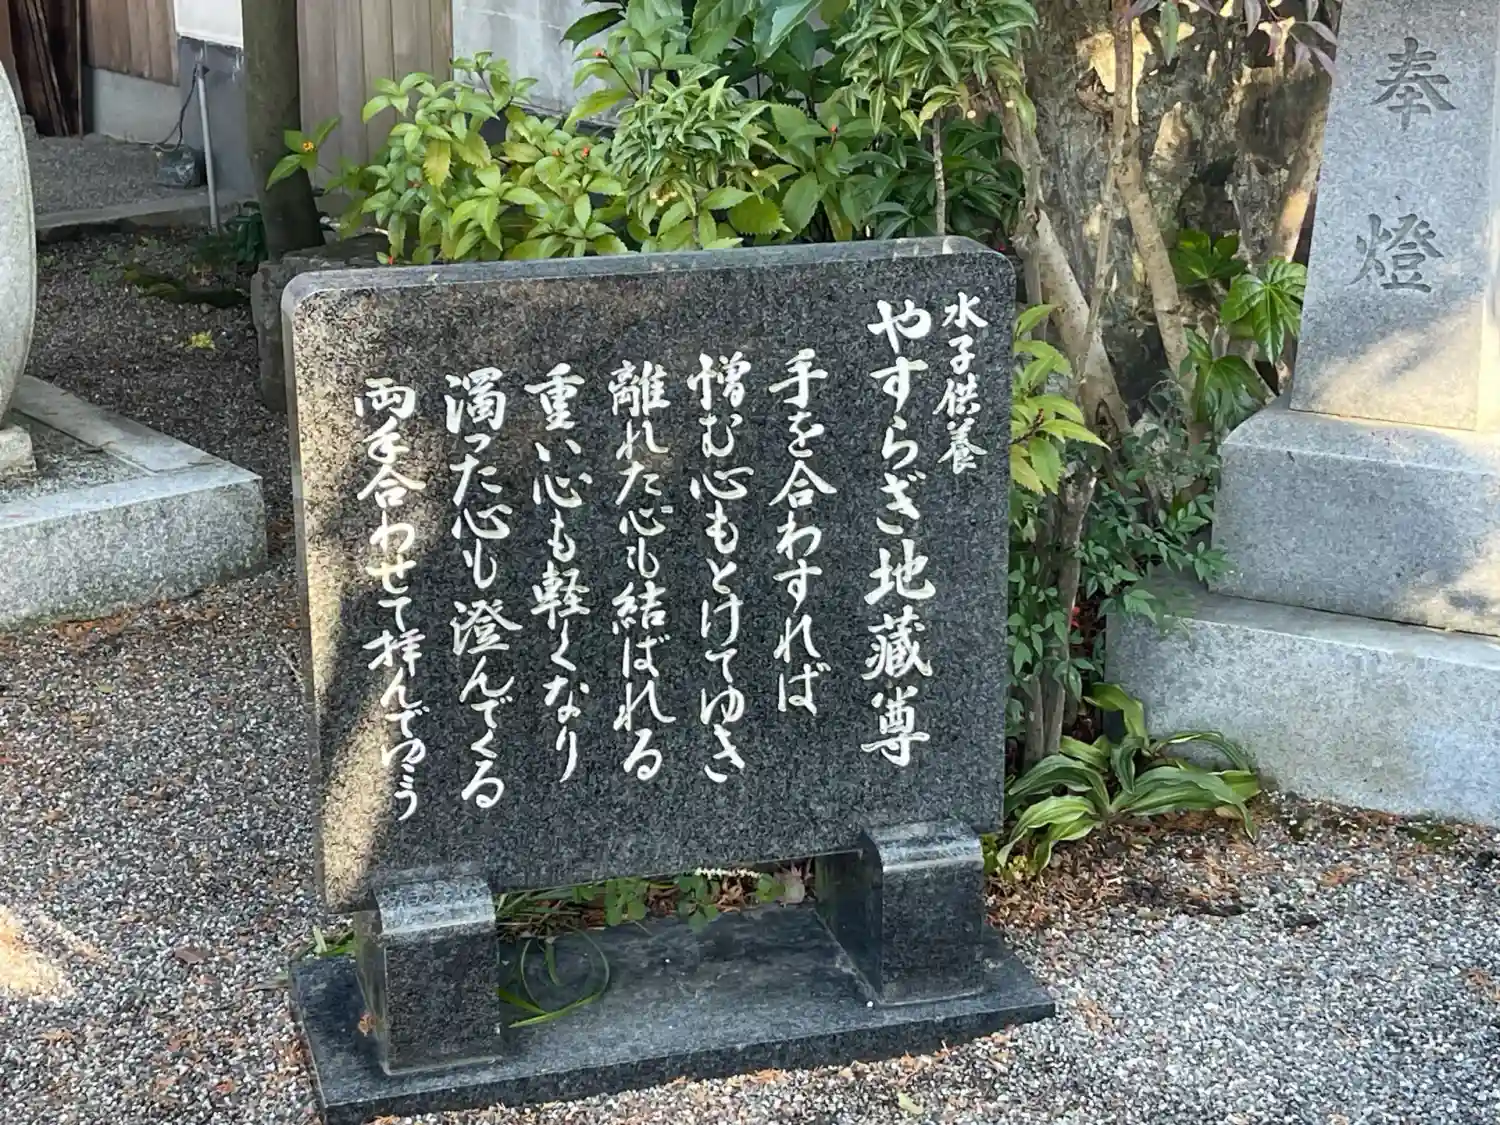 奉燈
水子供養
やすらぎ地蔵尊
手を合わすれば
憎む心もとけてゆき
離れた心も結ばれる
重い心も軽くなり
濁った心も澄んでくる
両手合わせて拝んでゆこう